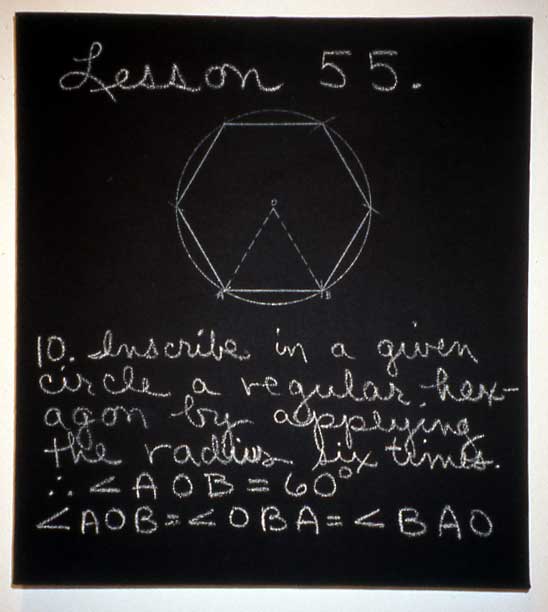 Lesson 55.
O
A B
10. Inscribe in a given
circle a regular hex-
agon by applying
the radius six times.
∴ ∠AOB = 60°
∠AOB = ∠OBA = ∠BAO